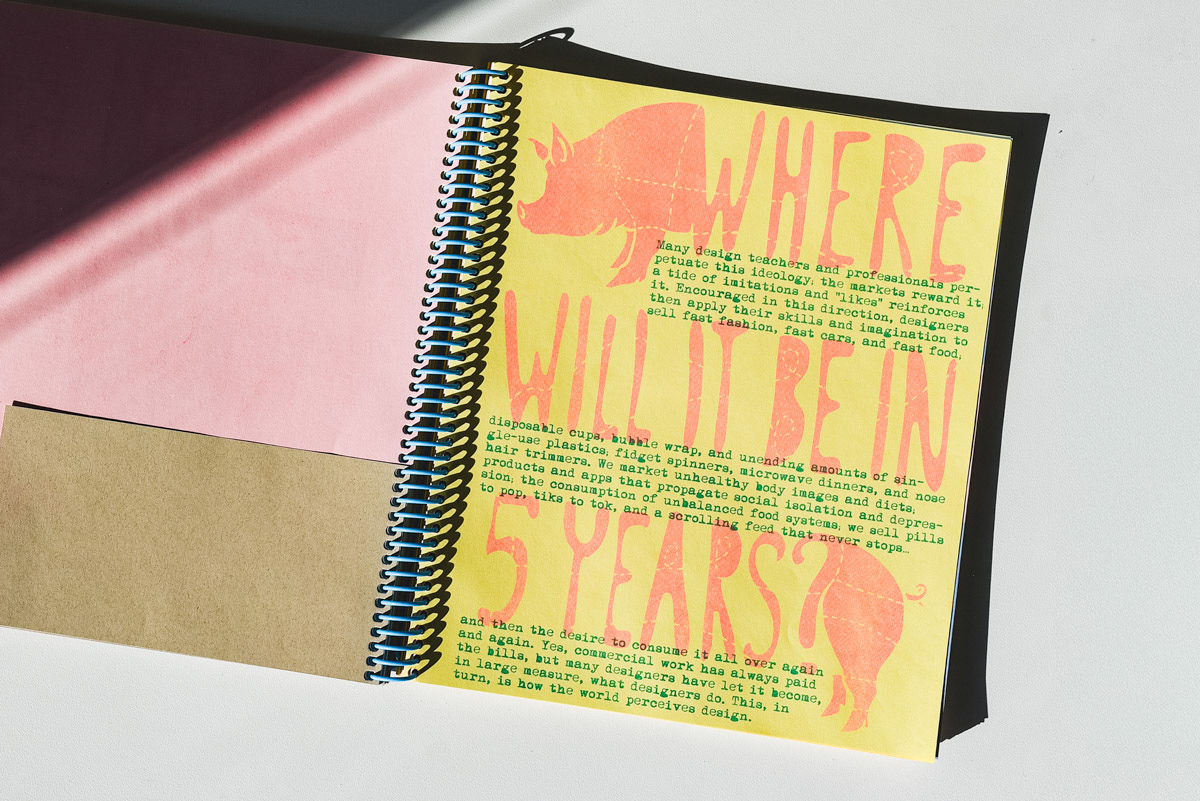 WHERE
Many design teachers and professionals per-
petuate this ideology; the markets reward it;
a tide of imitations and "likes" reinforces
it. Encouraged in this direction, designers
then apply their skills and imagination to
sell fast fashion, fast cars, and fast food;
WILL IT BE IN
disposable cups, bubble wrap, and unending amounts of sin-
gle-use plastics; fidget spinners, microwave dinners, and nose
hair trimmers. We market unhealthy body images and diets;
products and apps that propagate social isolation and depres-
sion; the consumption of unbalanced food systems; we sell pills
to pop, tiks to tok, and a scrolling feed that never stops…
5 YEARS?
and then the desire to consume it all over again
and again. Yes, commercial work has always paid
the bills, but many designers have let it become,
in large measure, what designers do. This, in
turn, is how the world perceives design.